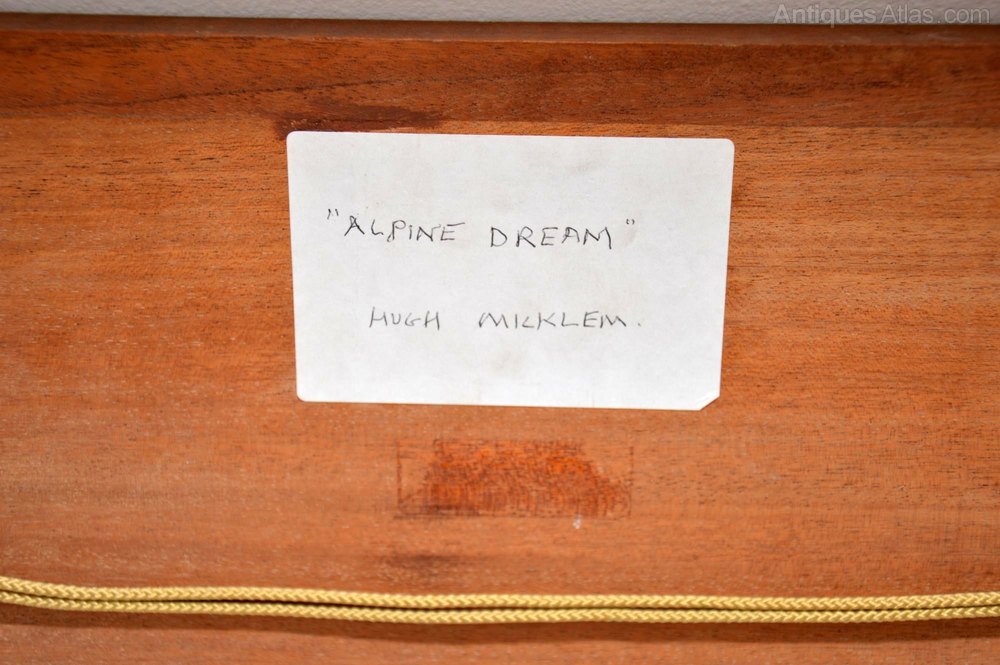 AntiquesAtlas.com
"ALPINE DREAM"
HUGH MICKLEM.